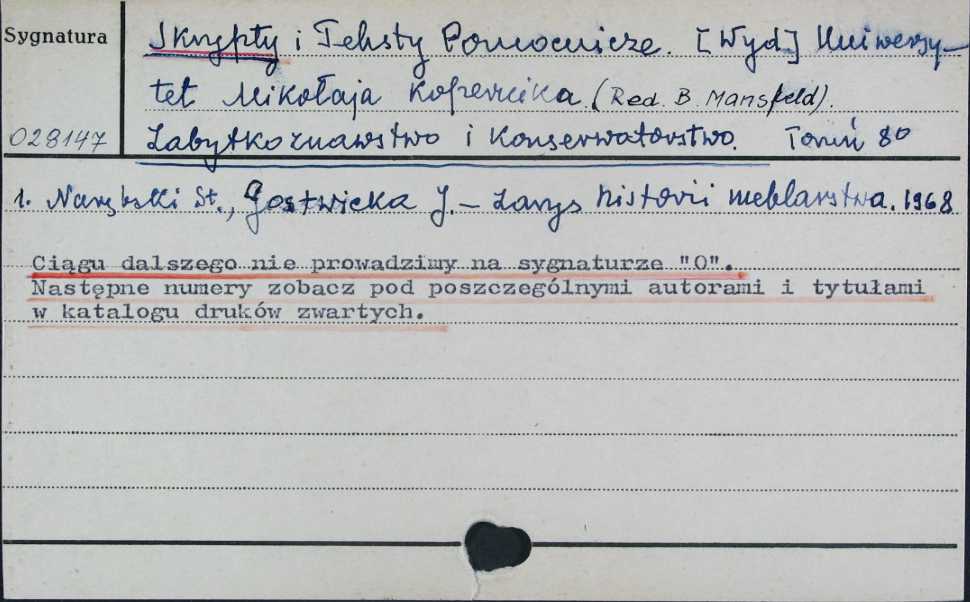 Sygnatura
Skrypty i Teksty Pomocnicze. [Wyd] Uniwersy-
tet Mikołaja Kopernika. (Red. B. Mansfeld).
028147 Zabytkoznawstwo i Konserwatorstwo. Toruń 8°
1. Narębski St., Gostwicka J. – Zarys historii meblarstwa. 1968
Ciągu dalszego nie prowadzimy na sygnaturze "0".
Następne numery zobacz pod poszczególnymi autorami i tytułami
w katalogu druków zwartych.